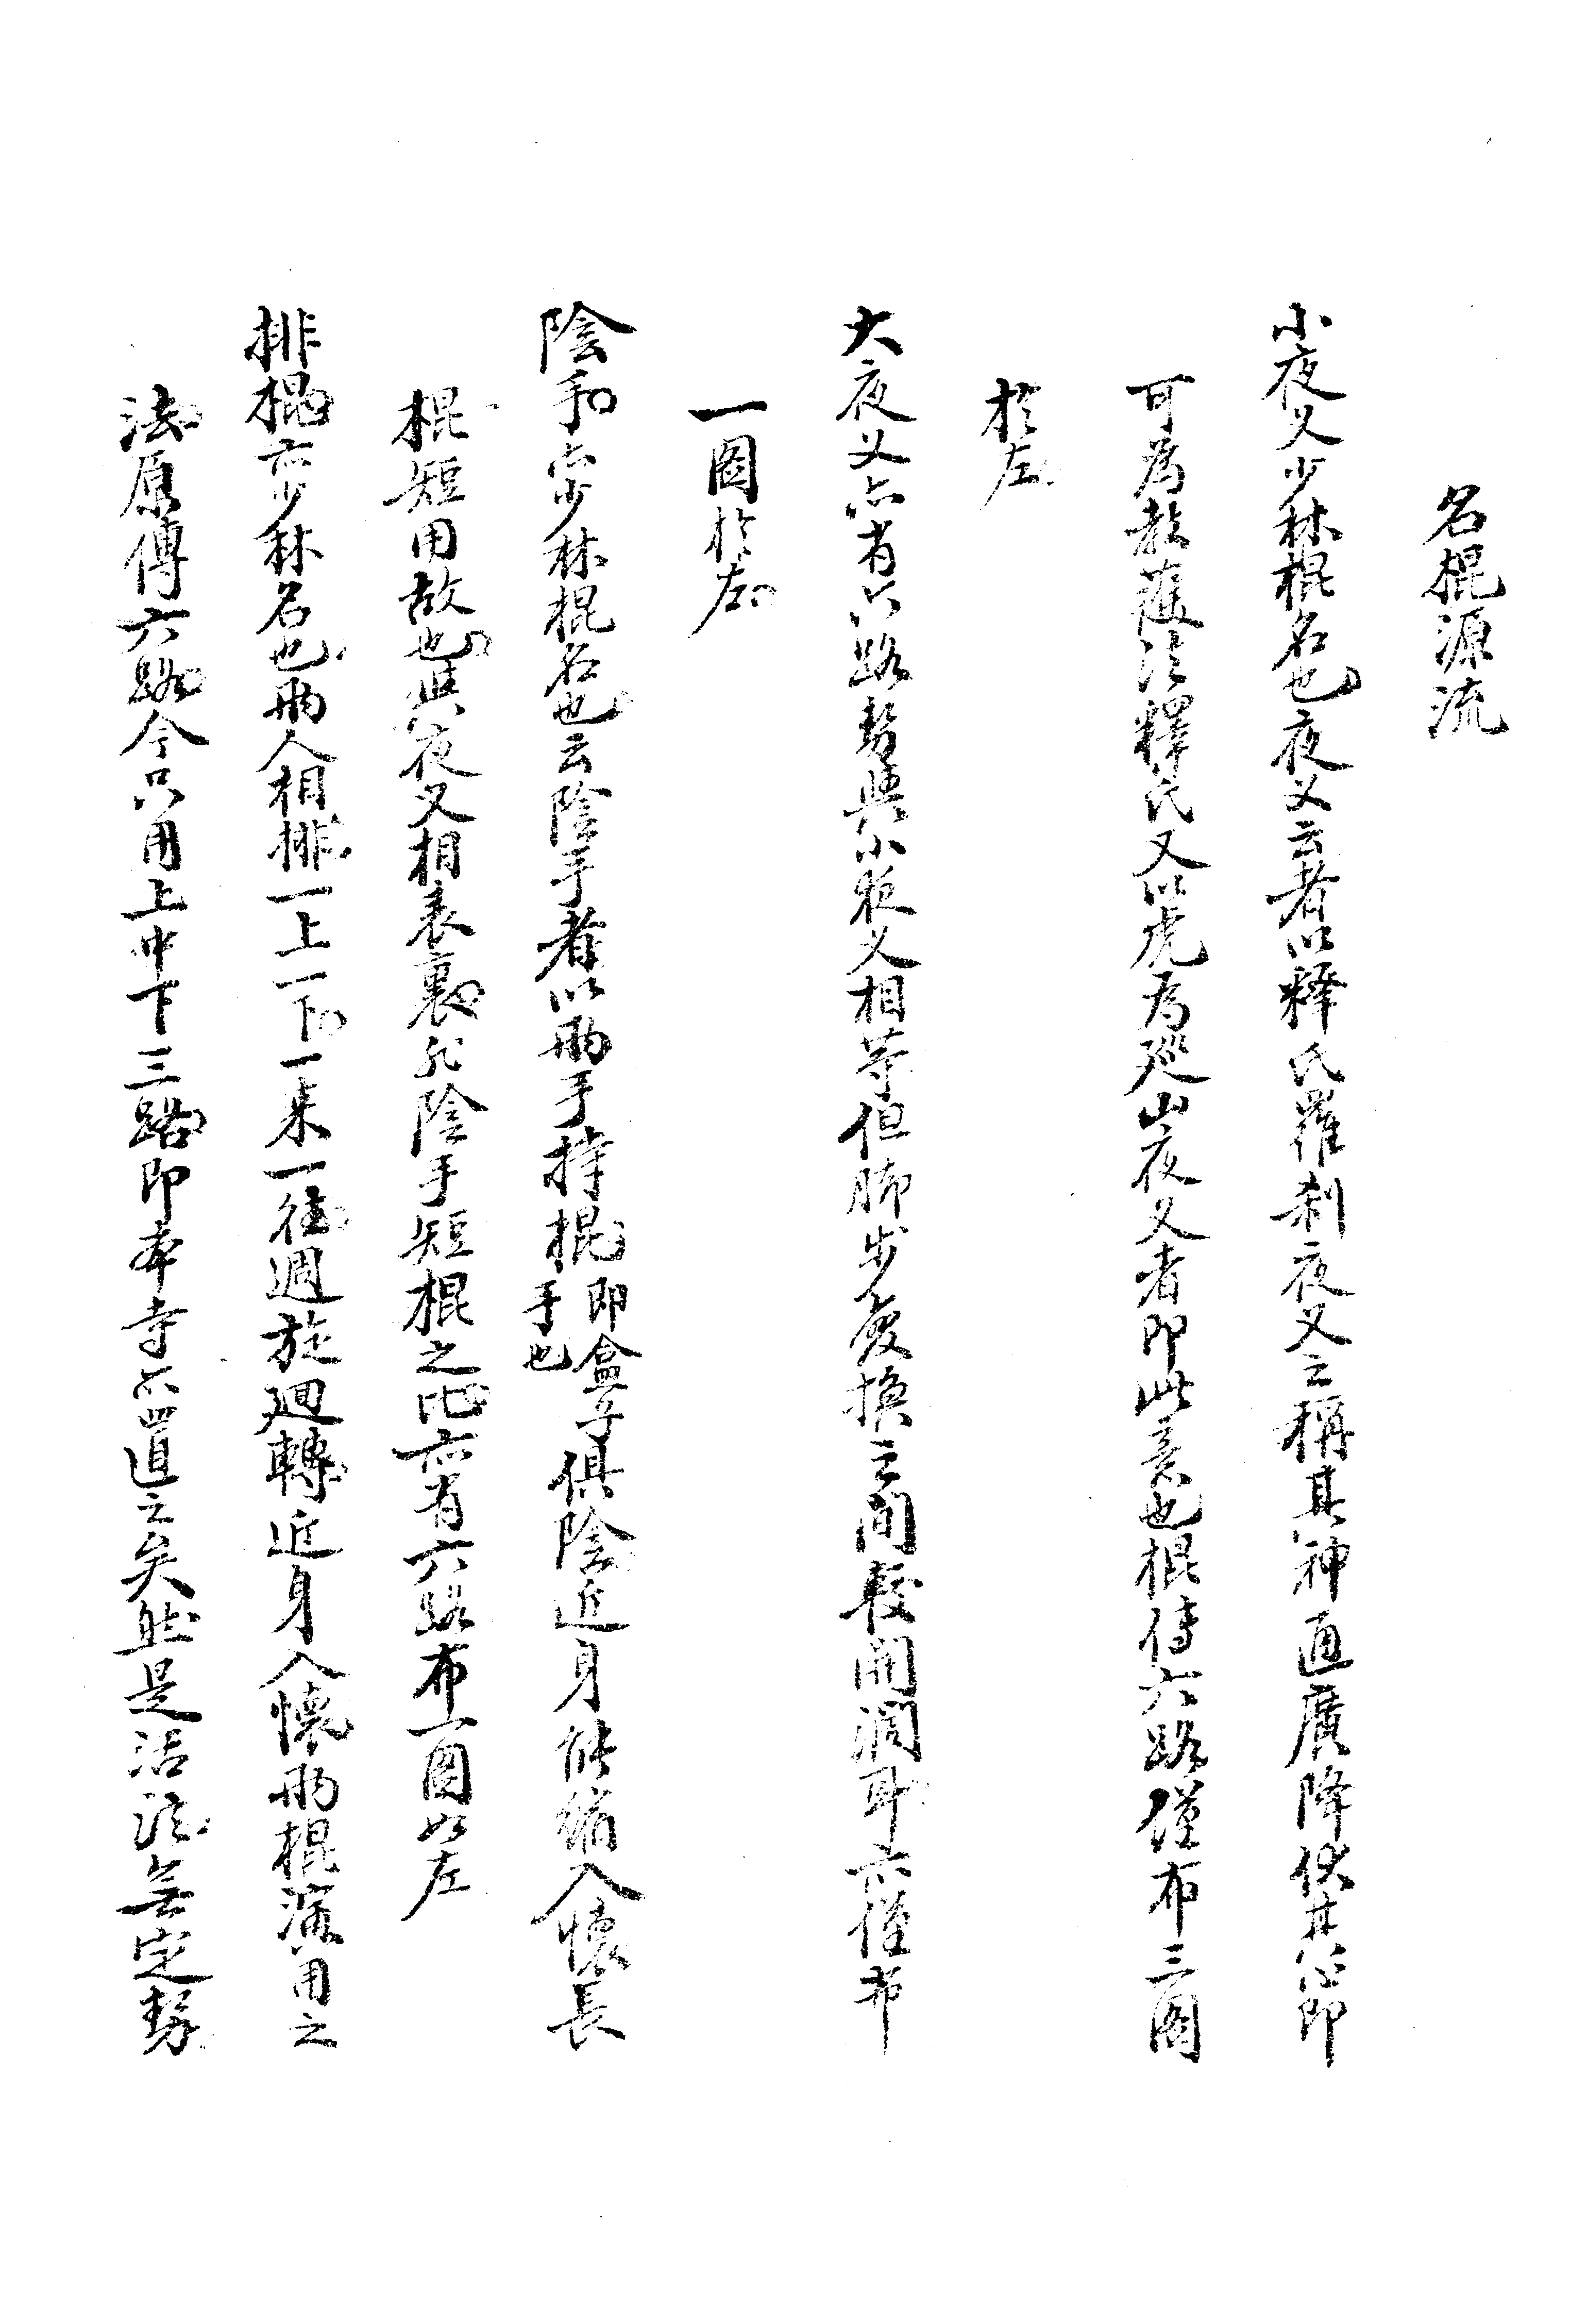 名棍源流
小夜叉少林棍名也夜叉云者以釋氏羅刹夜叉之稱其神通廣降伏其心即
可為教護法釋氏又以虎為廵山夜叉者即此意也棍傳六路僅布三圖
於左
大夜叉亦有六路勢與小夜叉相等但脚步變換之間較開濶耳亦僅布
一圖於左
陰手亦少林棍名也云陰手者以兩手持棍即盒子手也俱陰近身能縮入懷長
棍短用故也與夜叉相表裏非陰手短棍之比亦有六路布一圖如左
排棍亦少林名也兩人相排一上一下一來一往週旋廻轉近身入懷兩棍滿用之
法原傳六路今只用上中下三路即本寺亦置之矣然是活法無定勢